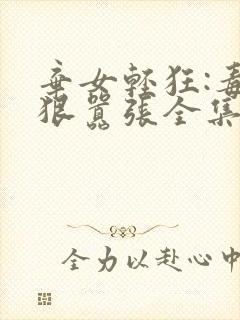 棄女輕狂:毒
狠囂張全集
全力以赴心中